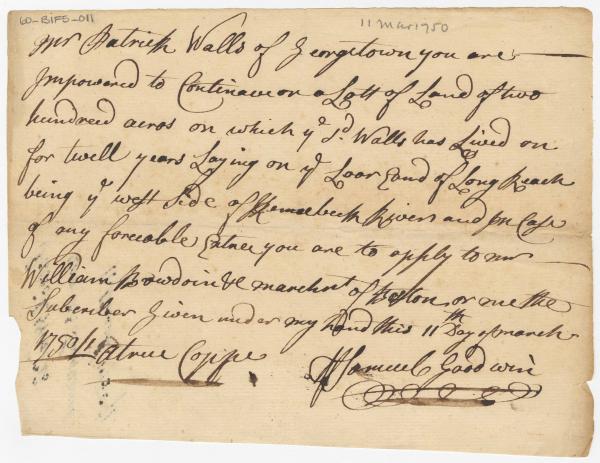 60-BIFS-011
11 Mar 1750
Mr Patrick Walls of Georgetown you are
Impowered to Continaue on a Lott of Land of two
hundred acros on which ye sd. Walls has Lived on
for twell years Laying on ye Loar End of Long Reach
being ye west Side of Kennebeck River and in Case
of any forceable Entree you are to apply to mr
William Bowdoin marchnt of Boston or me the
Subscriber Given under my hand this 11th Day of march
1750/1 a true Coppe
Samuel Goodwin